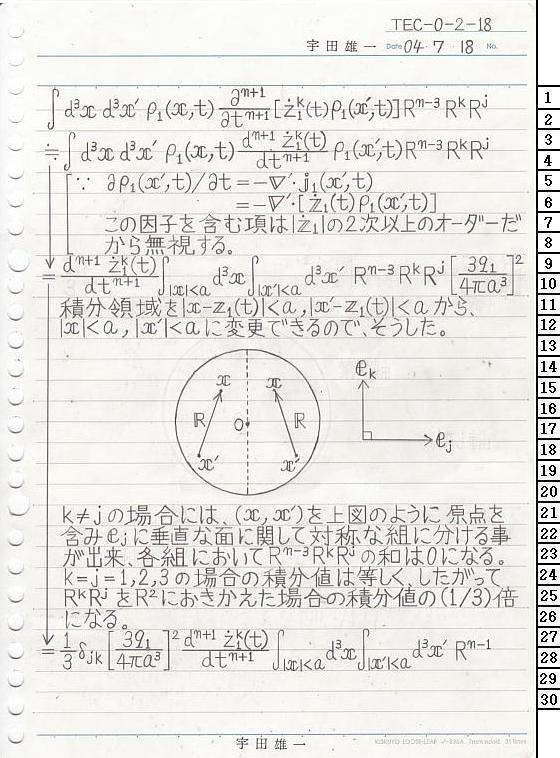 TEC-0-2-18
宇田雄一 Date 04・7・18 No.
∫d³x d³x′ ρ₁(x,t) ∂ⁿ⁺¹/∂tⁿ⁺¹ [ż₁ᵏ(t)ρ₁(x′,t)]Rⁿ⁻³ RᵏRʲ
≒∫d³x d³x′ ρ₁(x,t) dⁿ⁺¹ż₁ᵏ(t)/dtⁿ⁺¹ ρ₁(x′,t)Rⁿ⁻³RᵏRʲ
[∵ ∂ρ₁(x′,t)/∂t = -∇′·j₁(x′,t)
= -∇′·[ż₁(t)ρ₁(x′,t)]
この因子を含む項は|ż₁|の2次以上のオーダーだ
から無視する。
= dⁿ⁺¹ż₁ᵏ(t)/dtⁿ⁺¹ ∫|x|<a d³x ∫|x′|<a d³x′ Rⁿ⁻³RᵏRʲ [3q₁/4πa³]²
積分領域を|x-z₁(t)|<a, |x′-z₁(t)|<a から、
|x|<a, |x′|<a に変更できるので、そうした。
x x
ℝ O ℝ
x′ x′
eₖ
eⱼ
k≠jの場合には、(x,x′)を上図のように原点を
含みeⱼに垂直な面に関して対称な組に分ける事
が出来、各組においてRⁿ⁻³RᵏRʲの和は0になる。
k=j=1,2,3の場合の積分値は等しく、したがって
RᵏRʲをR²におきかえた場合の積分値の(1/3)倍
になる。
= 1/3 δⱼₖ [3q₁/4πa³]² dⁿ⁺¹ż₁ᵏ(t)/dtⁿ⁺¹ ∫|x|<a d³x ∫|x′|<a d³x′ Rⁿ⁻¹
宇田雄一
KOKUYO LOOSE-LEAF ノ-836A 7mm ruled 31 lines
1
2
3
4
5
6
7
8
9
10
11
12
13
14
15
16
17
18
19
20
21
22
23
24
25
26
27
28
29
30